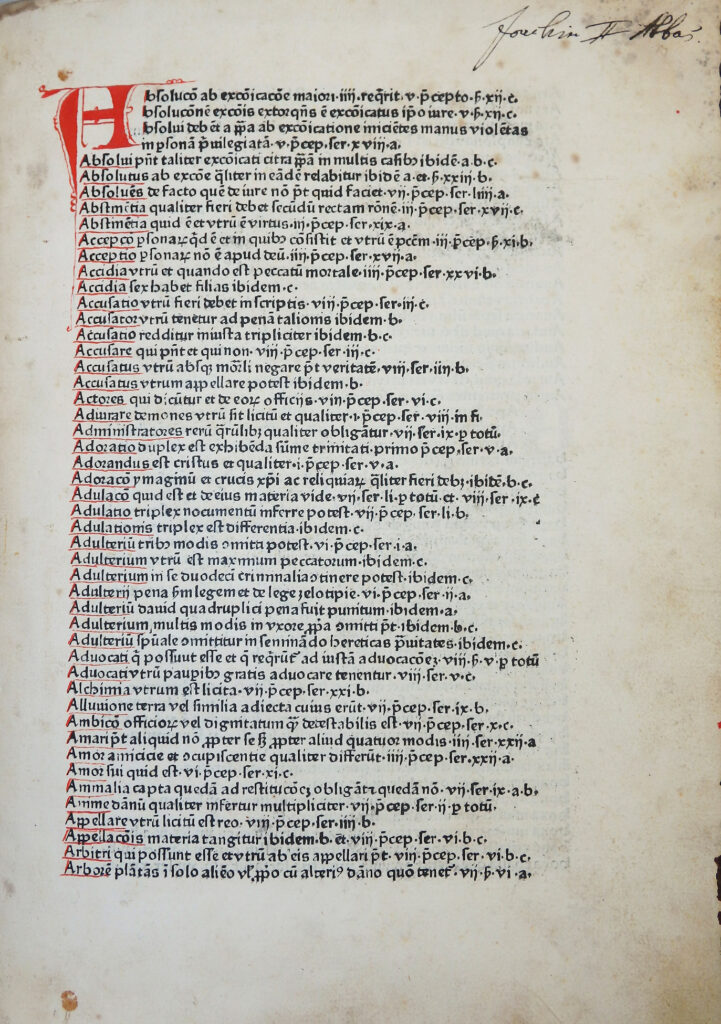 Joachim II Abbas.
Absolucõ ab excõicacõe maiori·iiii·reqrit·v·p̃cepto·ẞ·xij·c.
bsolucõnẽ excõis extorqñs ẽ excõicatus ip̃o iure·v·ẞ·xij·c·
bsolui debẽt a ꝓp̃a ab excõicatione iniciẽtes manus violẽtas
in ꝑsonã p̃uilegiatã·v·p̃cep·ser·xviij·a·
Absolui pñt taliter excõicati citra ꝓp̃ã in multis casibꝰ ibidẽ·a·b·c·
Absolutus ab excõe q̃liter in eãdẽ relabitur ibidẽ·a·et·ẞ·xxiij·b·
Absoluẽs de facto quẽ de iure nõ p̃t quid faciet·vij·p̃cep·ser·liiij·a.
Abstinẽtia qualiter fieri debet secũdũ rectam rõnẽ·iij·p̃cep·ser·xvij·c.
Abstinẽtia quid ẽ et vtrũ ẽ virtus·iij·p̃cep·ser·xix·a.
Accepcõ ꝑsonaꝝ qd ẽ et in quibꝰ cõsistit et vtrũ ẽ pccm̃·iii·p̃cep·ẞ·xi·b·
Acceptio ꝑsonaꝝ nõ ẽ apud deũ·iiij·p̃cep·ser·xvij·a.
Accidia vtrũ et quando est peccatũ mortale·iiij·p̃cep·ser·xxvi·b.
Accidia sex habet filias ibidem·c.
Accusatio vtrũ fieri debet in scriptis·viij·p̃cep·ser·iij·c.
Accusator vtrũ tenetur ad penã talionis ibidem·b.
Accusatio redditur iniusta tripliciter ibidem·b·c.
Accusare qui pñt et qui non·viij·p̃cep·ser·iij·c.
Accusatus vtrũ absqꝫ mor̃li negare p̃t veritatẽ·viij·ser·iiij·b.
Accusatus vtrum appellare potest ibidem·b.
Actores qui dicũtur et de eoꝝ officijs·viij·p̃cep·ser·vi·c.
Adiurare demones vtrũ sit licitũ et qualiter·i·p̃cep·ser·viij·in fi·
Administratores rerũ q̃rũlibꝫ qualiter obligãtur·vij·ser·ix·ꝑ totũ.
Adoratio duplex est exhibẽda sũme trinitati·primo p̃cep·ser·v·a.
Adorandus est cristus et qualiter·i·p̃cep·ser·v·a.
Adoracõ ymaginũ et crucis xp̃i ac reliquiaꝝ q̃liter fieri debꝫ·ibidẽ·b·c.
Adulacõ quid est et de eius materia vide·vij·ser·li·ꝑ totũ·et·viij·ser·ix·c
Adulatio triplex nocumẽtũ inferre potest·vij·p̃cep·ser·li·b.
Adulationis triplex est differentia·ibidem·c.
Adulteriũ tribꝰ modis ꝯmitti potest·vi·p̃cep·ser·i·a.
Adulterium vtrũ est maximum peccatorum·ibidem·c.
Adulterium in se duodeci crimĩnalia ꝯtinere potest·ibidem·c.
Adulterij pena ẞm legem et de lege zelotipie·vi·p̃cep·ser·ij·a.
Adulteriũ dauid quadruplici pena fuit punitum·ibidem·a.
Adulterium multis modis in vxore ꝓp̃a ꝯmitti p̃t·ibidem·b·c.
Adulteriũ spũale ꝯmittitur in seminãdo hereticas p̃uitates·ibidem·c.
Aduocati q̃ possunt esse et q̃ reqrũt̃ ad iustã aduocacõeꝫ·viij·ẞ·v·ꝑ totũ
Aduocati vtrũ paupibꝰ gratis aduocare tenentur·viij·ser·v·c.
Alchimia vtrum est licita·vij·p̃cep·ser·xxi·b.
Alluuione terra vel similia adiecta cuius erũt·vij·p̃cep·ser·ix·b.
Ambicõ officioꝝ vel dignitatum q̃ detestabilis est·vij·p̃cep·ser·x·c.
Amari p̃t aliquid nõ ꝓpter se sꝫ ꝓpter aliud quatuor modis·iiij·ser·xxij·a
Amor amicicie et ꝯcupiscentie qualiter differũt·iiij·p̃cep·ser·xxij·a.
Amor sui quid est·vi·p̃cep·ser·xi·c.
Animalia capta quedã ad restitucõeꝫ obligãt⁊ quedã nõ·vij·ser·ix·a·b.
Anime dãnũ qualiter infertur multipliciter·vij·p̃cep·ser·ij·ꝑ totũ.
Appellare vtrũ licitũ est reo·viij·p̃cep·ser·iiij·b.
Appellacõis materia tangitur ibidem·b·et·viij·p̃cep·ser·vi·b·c.
Arbitri qui possunt esse et vtrũ ab eis appellari p̃t·viij·p̃cep·ser·vi·b·c.
Arborẽ plãtãs ĩ solo aliẽo vl̃ ꝓp̃o cũ alteriꝰ dãno quõ tenet̃·vij·ẞ·vi·a.